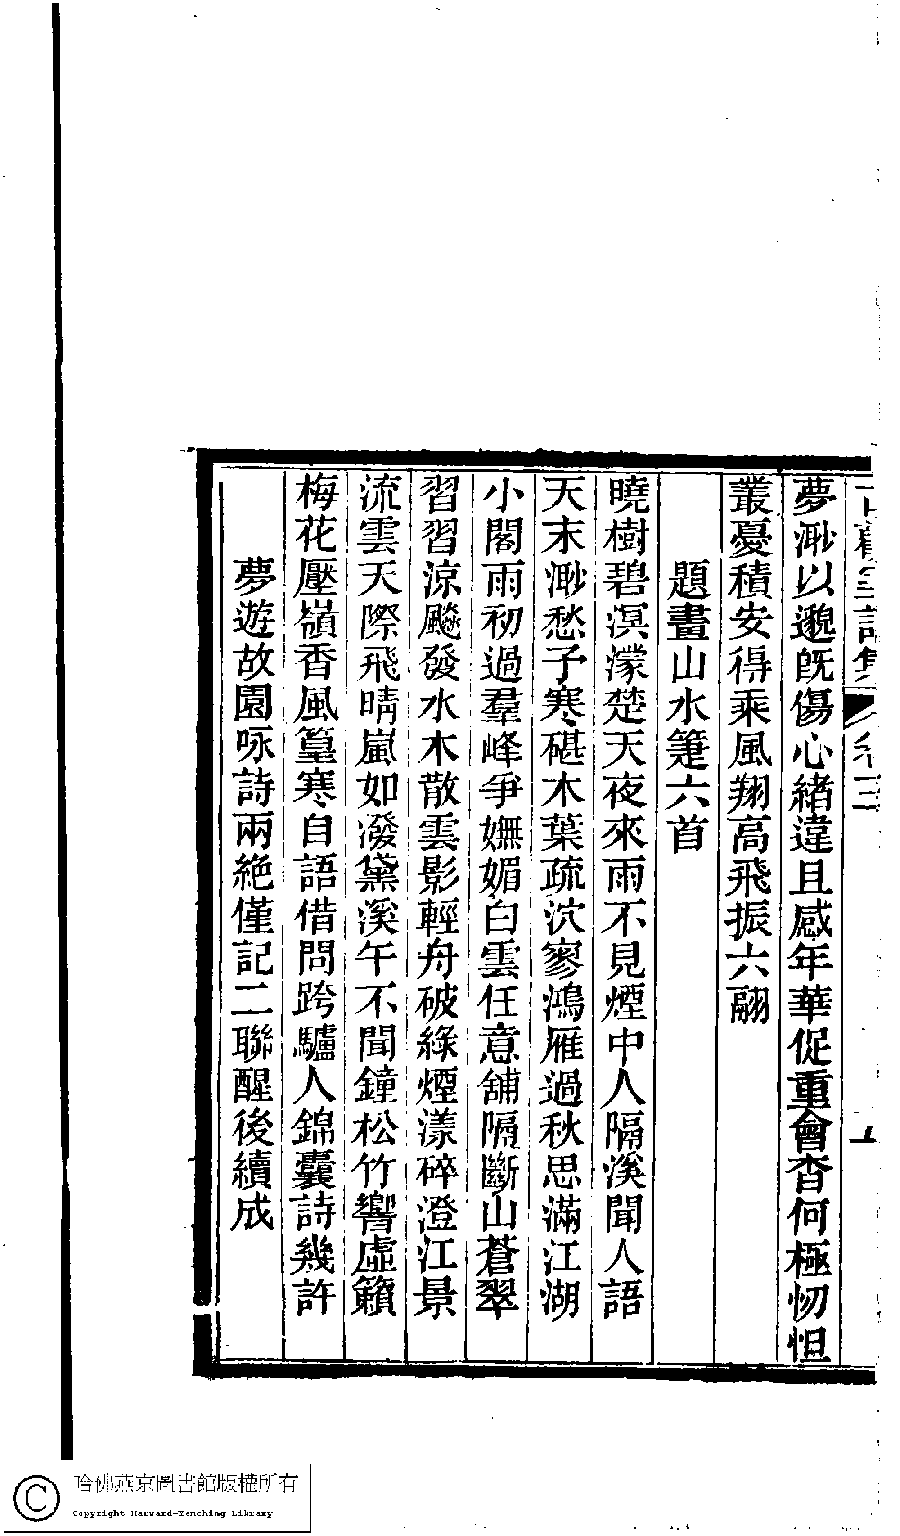 夢渺以邈旣傷心緒違且感年華促重會杳何極忉怛
叢憂積安得乘風翔高飛振六翮
題畫山水箑六首
曉樹碧溟濛楚天夜來雨不見煙中人隔溪聞人語
天末渺愁予寒碪木葉疏泬寥鴻雁過秋思滿江湖
小閣雨初過羣峰爭嫵媚白雲任意舖隔斷山蒼翠
習習涼颸發水木散雲影輕舟破綠煙漾碎澄江景
流雲天際飛晴嵐如潑黛溪午不聞鐘松竹響虛籟
梅花壓嶺香風篁寒自語借問跨驢人錦囊詩幾許
夢遊故園咏詩兩絶僅記二聯醒後續成
哈佛燕京圖書館版權所有
Copyright Harvard-Yenching Library